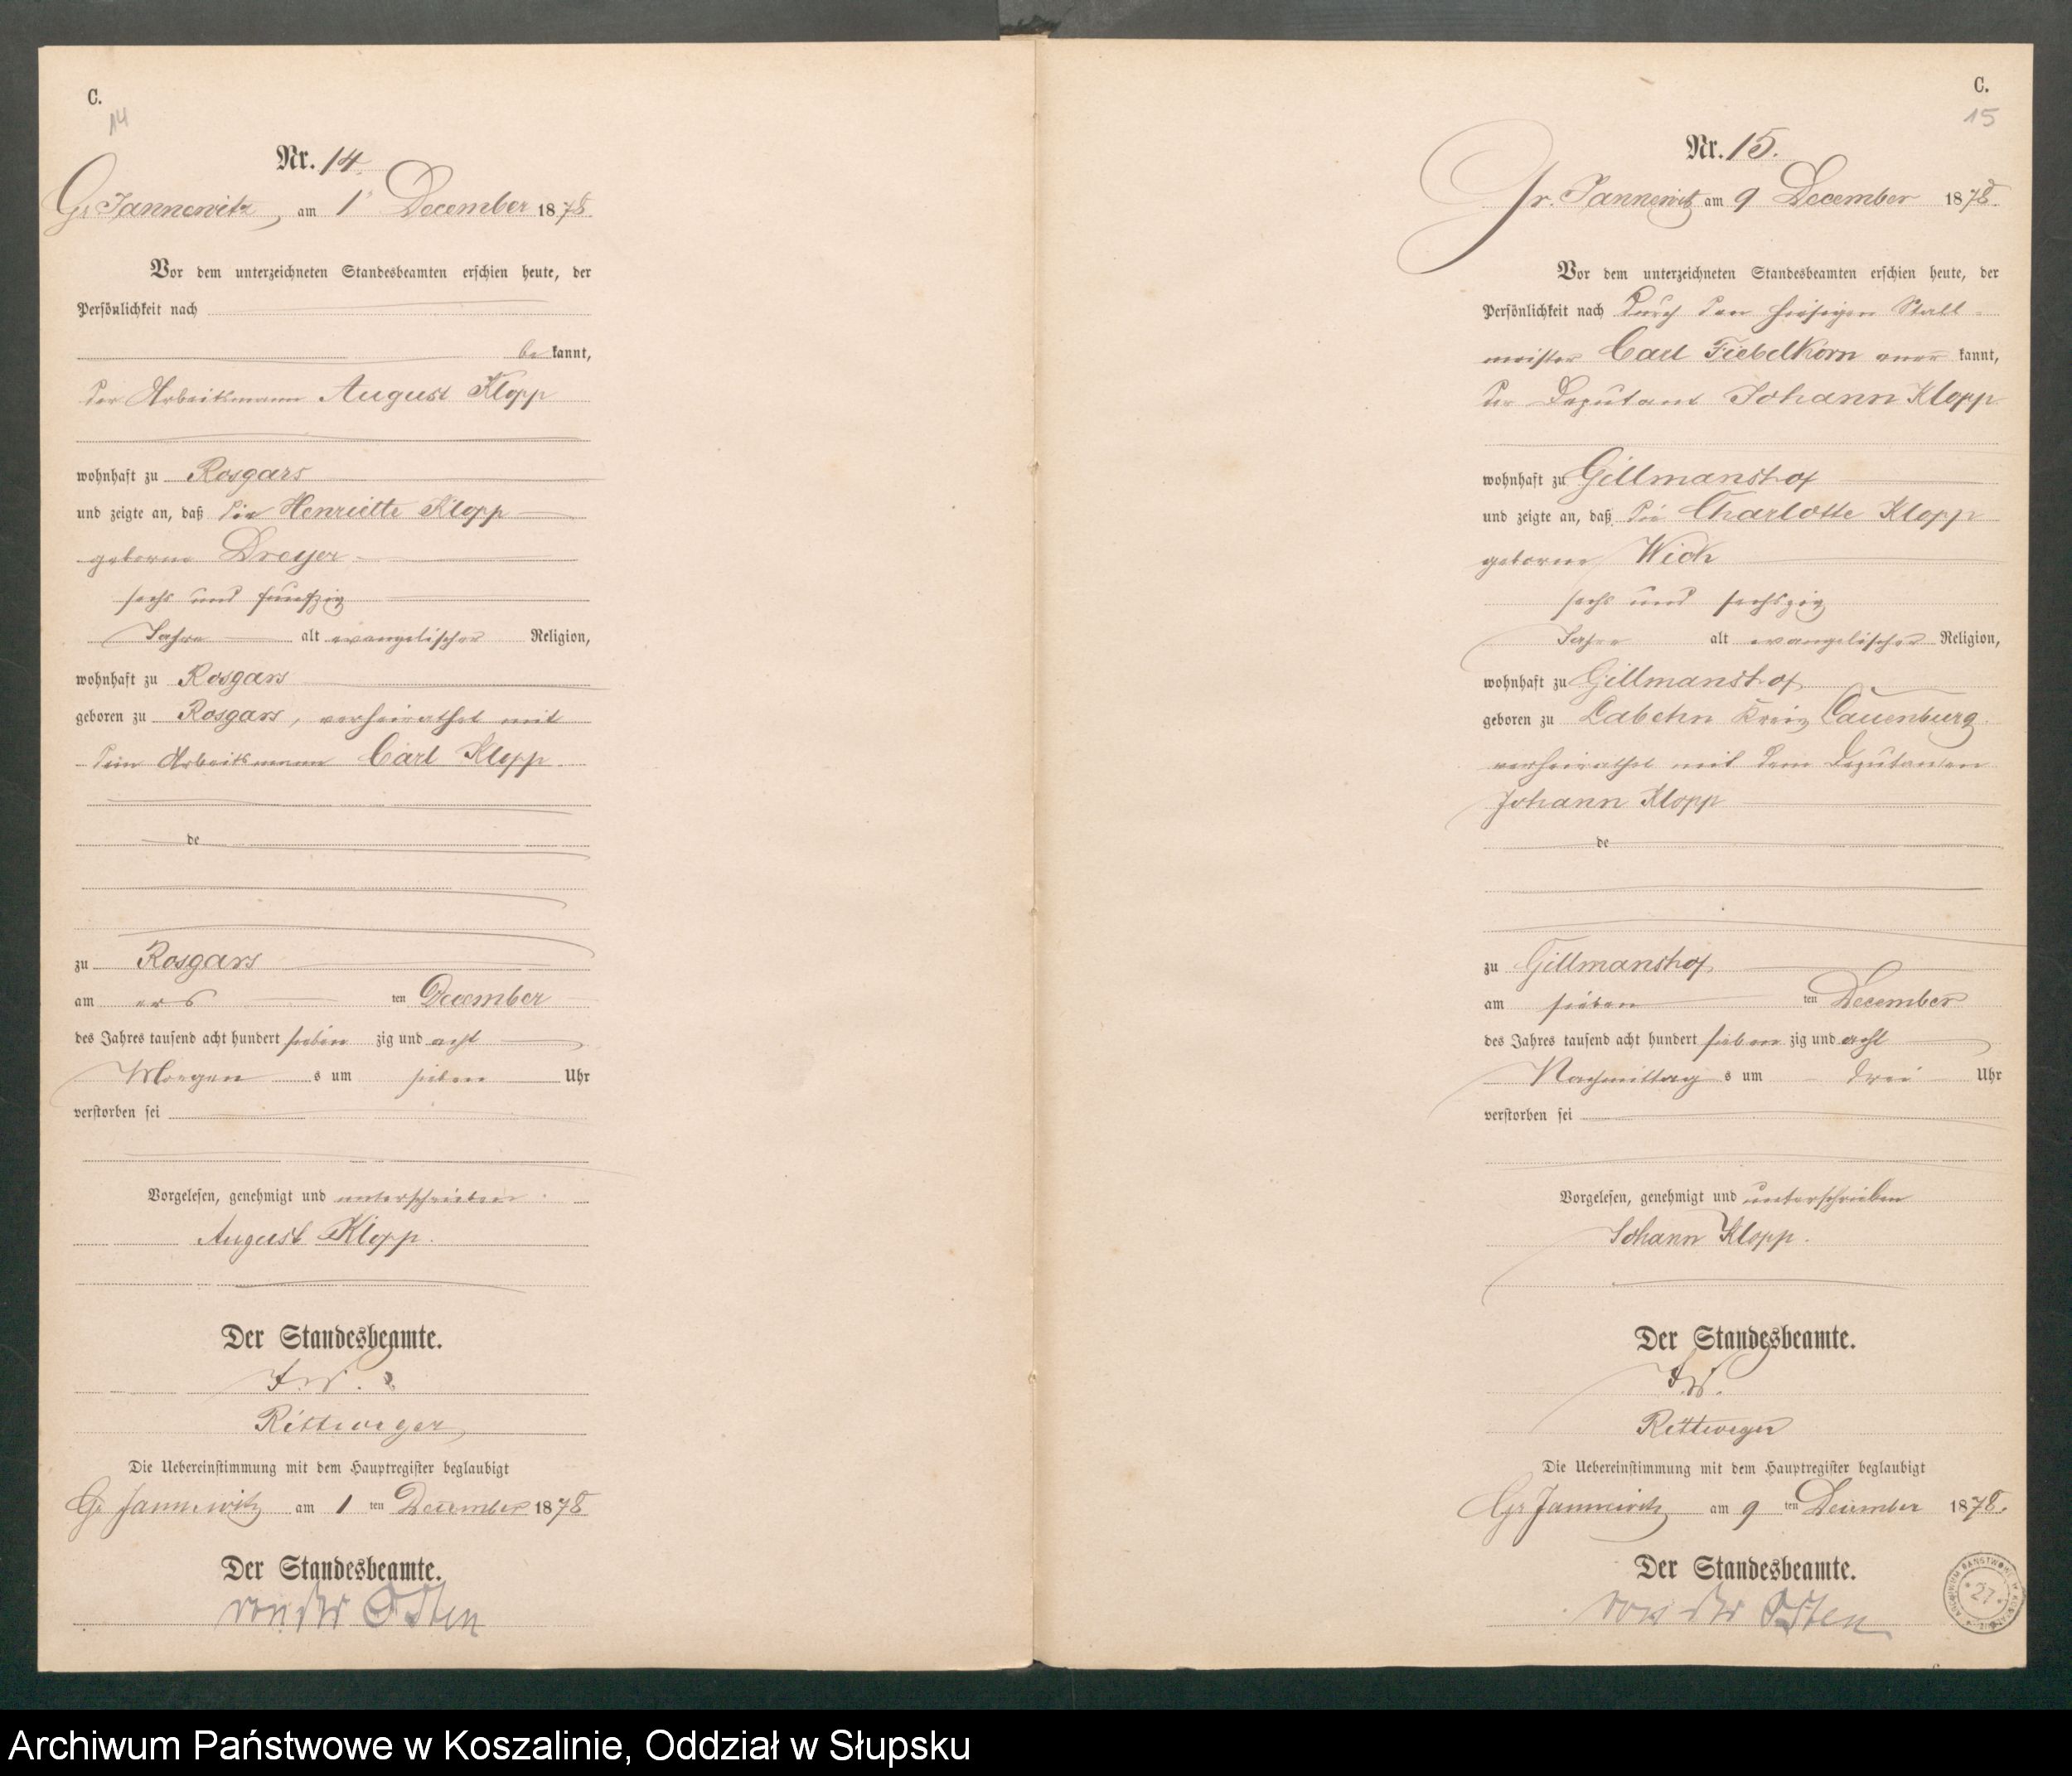 C.
14
Nr. 14.
Gr. Jannewitz, am 1 December 1878.
Vor dem unterzeichneten Standesbeamten erschien heute, der
Persönlichkeit nach
be kannt,
der Arbeitsmann August Klopp
wohnhaft zu Rosgars
und zeigte an, daß die Henriette Klopp
geborne Dreyer
sechs und funfzig
Jahre alt evangelischer Religion,
wohnhaft zu Rosgars
geboren zu Rosgars, verheirathet mit
dem Arbeitsmann Carl Klopp.
de
zu Rosgars
am ers ten December
des Jahres tausend acht hundert sieben zig und acht
Morgen s um sieben Uhr
verstorben sei
Vorgelesen, genehmigt und unterschrieben.
August Klopp.
Der Standesbeamte.
Rittweger
Die Uebereinstimmung mit dem Hauptregister beglaubigt
Gr. Jannewitz am 1 ten December 1878
Der Standesbeamte.
von der Osten
C.
15
Nr. 15.
Gr. Jannewitz am 9 December 1878.
Vor dem unterzeichneten Standesbeamten erschien heute, der
Persönlichkeit nach durch den hiesigen Stall-
meister Carl Fiebelkorn aner kannt,
der Deputant Johann Klopp
wohnhaft zu Gillmanshof
und zeigte an, daß die Charlotte Klopp
geborne Wick
sechs und sechszig
Jahre alt evangelischer Religion,
wohnhaft zu Gillmanshof
geboren zu Labehn Kreis Lauenburg.
verheirathet mit dem Deputanten
Johann Klopp
de
zu Gillmanshof
am sieben ten December
des Jahres tausend acht hundert sieben zig und acht
Nachmittag s um drei Uhr
verstorben sei
Vorgelesen, genehmigt und unterschrieben
Johann Klopp.
Der Standesbeamte.
Rittweger
Die Uebereinstimmung mit dem Hauptregister beglaubigt
Gr. Jannewitz am 9 ten December 1878.
Der Standesbeamte.
von der Osten
27
Archiwum Państwowe w Koszalinie, Oddział w Słupsku